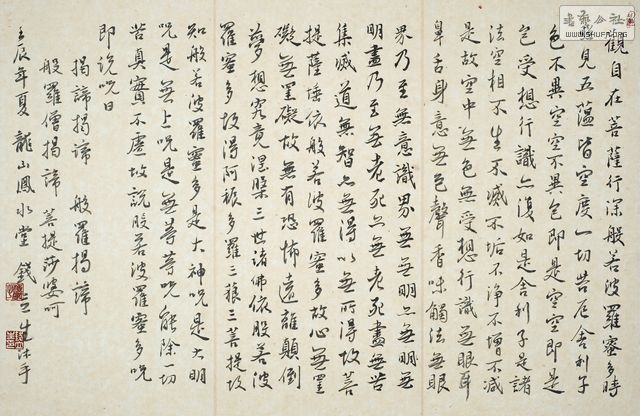 觀自在菩薩行深般若波羅蜜多時
見五蘊皆空度一切苦厄舍利子
色不異空空不異色即是空空即是
色受想行識亦復如是舍利子是諸
法空相不生不滅不垢不淨不增不減
是故空中無色無受想行識無眼耳
鼻舌身意無色聲香味觸法無眼
界乃至無意識界無無明亦無無
明盡乃至無老死亦無老死盡無苦
集滅道無智亦無得以無所得故菩
提薩埵依般若波羅蜜多故心無罣
礙無罣礙故無有恐怖遠離顛倒
夢想究竟涅槃三世諸佛依般若波
羅蜜多故得阿耨多羅三藐三菩提故
知般若波羅蜜多是大神咒是大明
咒是無上咒是無等等咒能除一切
苦真實不虛故說般若波羅蜜多咒
即說咒曰
揭諦揭諦 般羅揭諦
般羅僧揭諦 菩提莎婆呵
壬辰年夏 龍山鳳水堂 錢 生沐手
書藝公社
WWW.SHUFA.ORG